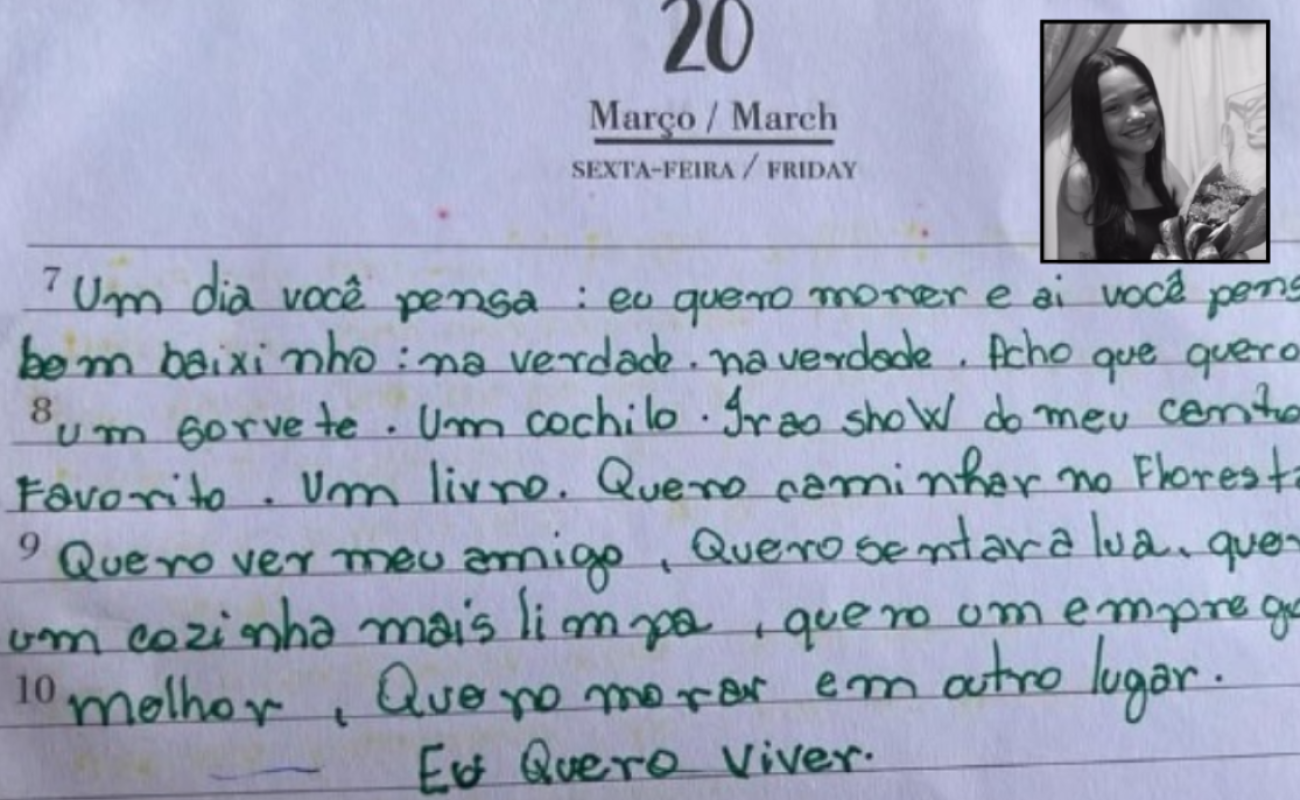 20
Março / March
SEXTA-FEIRA / FRIDAY
7 Um dia você pensa : eu quero morrer e ai você pens
bem baixinho : na verdade . na verdade . Acho que quero
8 um sorvete . Um cochilo . Ir ao show do meu canto
Favorito . Um livro . Quero caminhar na Florest
9 Quero ver meu amigo , Quero sentar a lua , quer
um cozinha mais limpa , quero um emprego
10 melhor , Quero morar em outro lugar .
Eu Quero Viver .